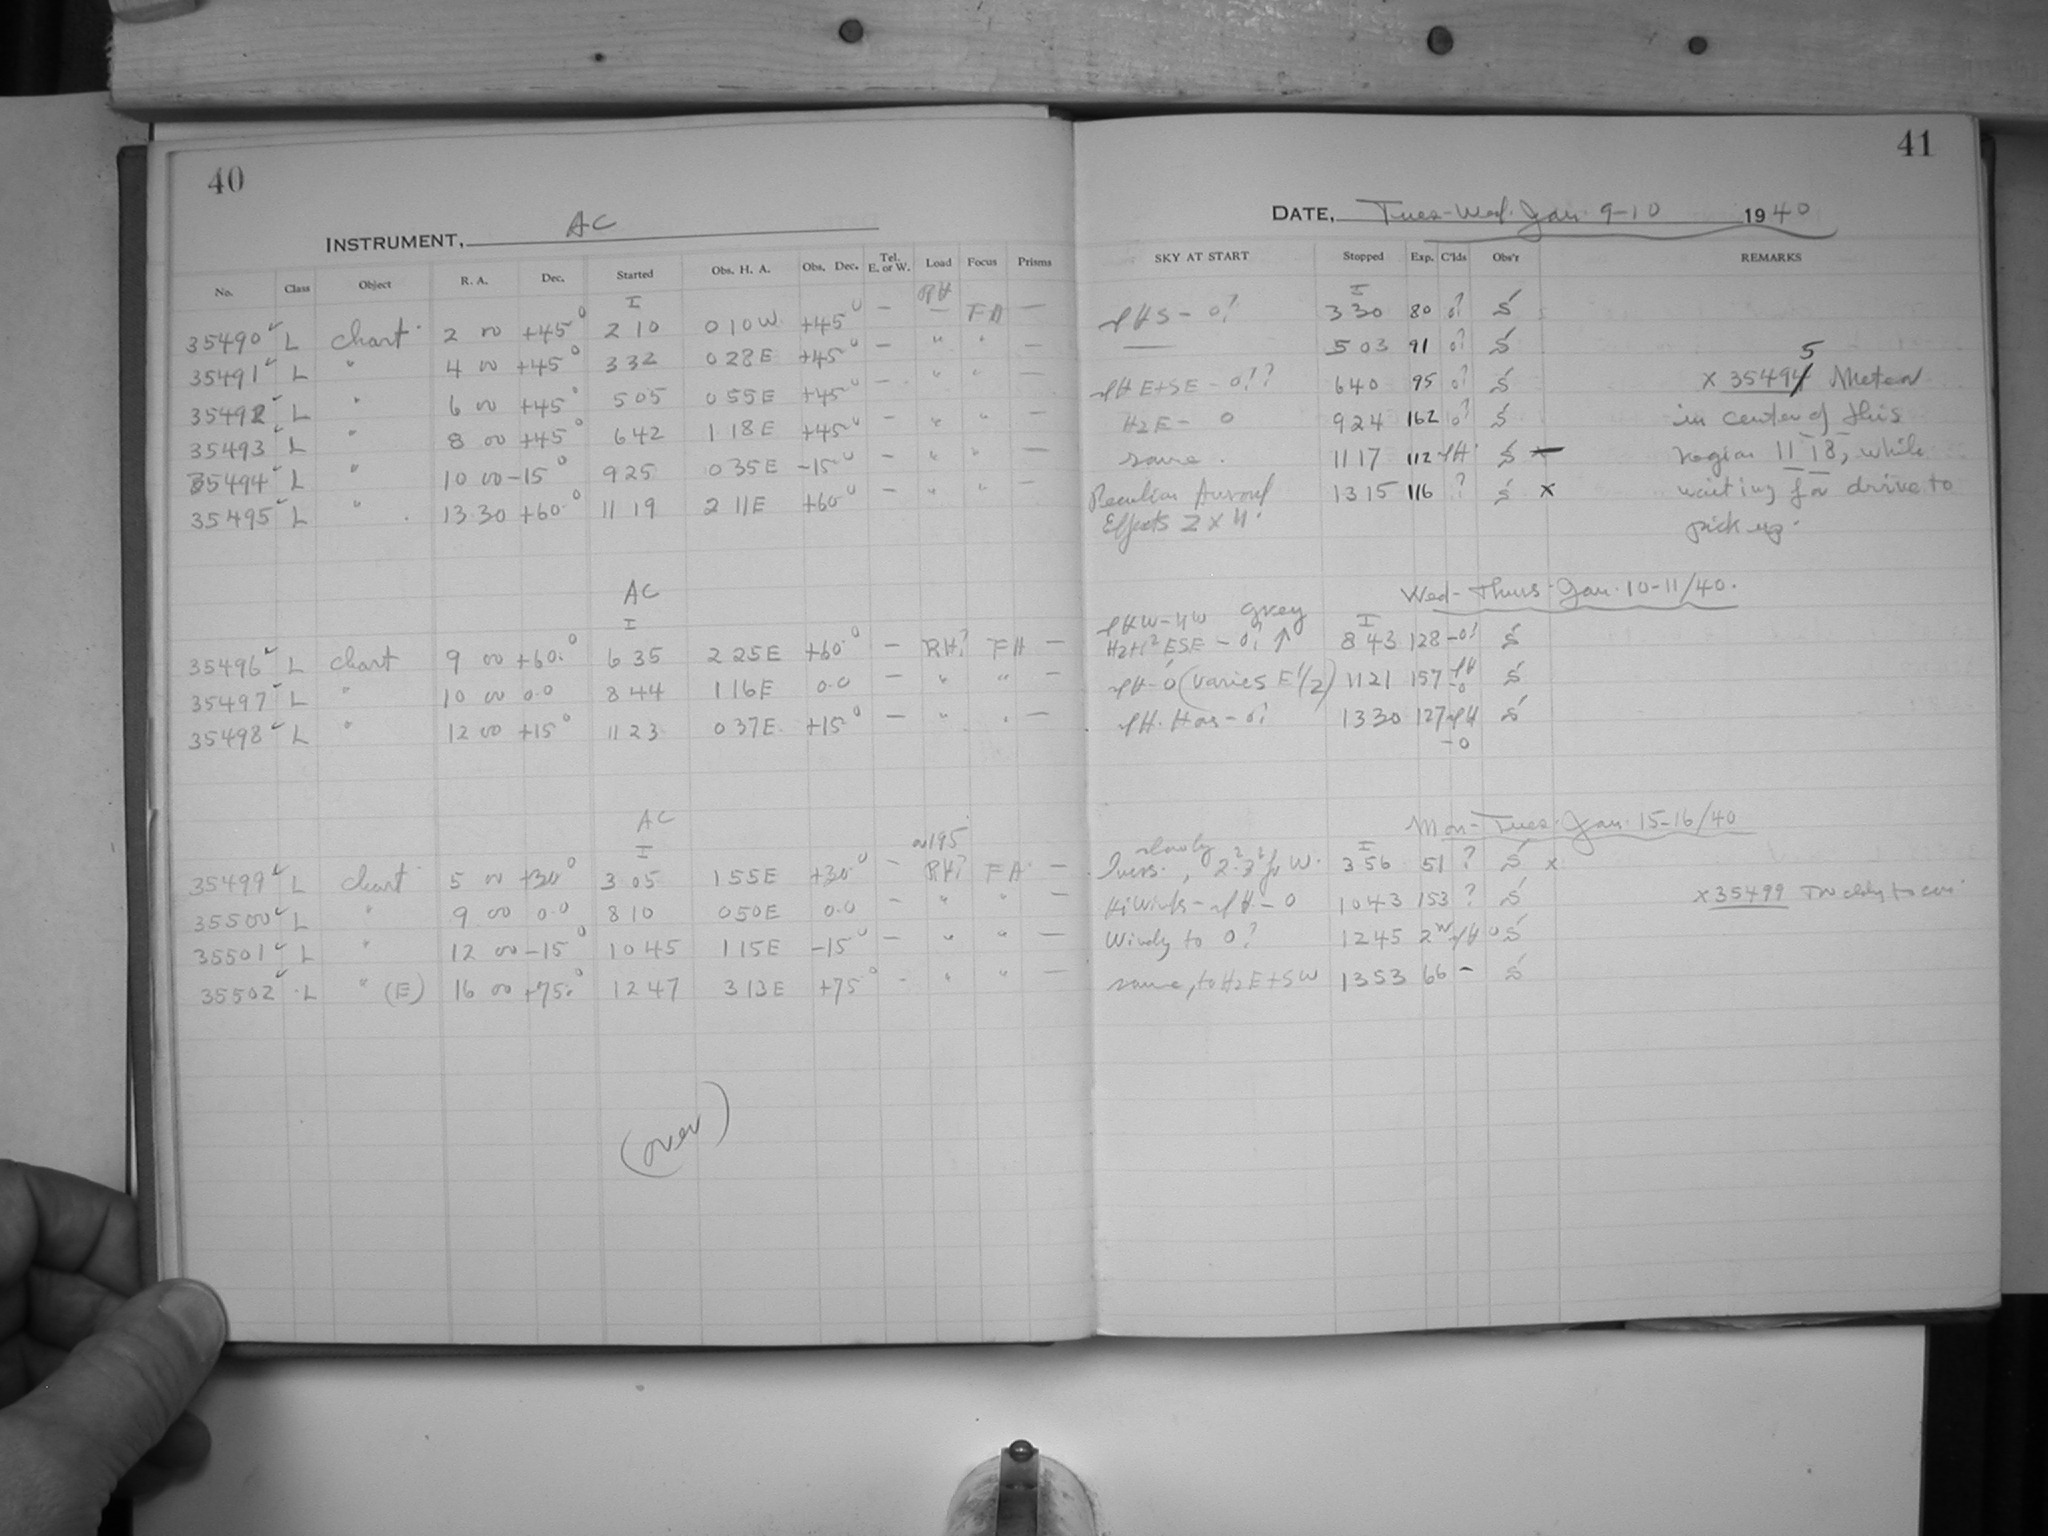 40
INSTRUMENT, AC
No. Class Object R. A. Dec. Started Obs. H. A. Obs. Dec. Tel. E. or W. Load Focus Prisms
I RH
35490 L chart 2 00 +45° 2 10 0 10 W +45° — — FA —
35491 L " 4 00 +45° 3 32 0 28 E +45° — " " —
35492 L " 6 00 +45° 5 05 0 55 E +45° — " " —
35493 L " 8 00 +45° 6 42 1 18 E +45° — " " —
35494 L " 10 00 -15° 9 25 0 35 E -15° — " " —
35495 L " 13 30 +60° 11 19 2 11 E +60° — " " —
AC
I
35496 L chart 9 00 +60° 6 35 2 25 E +60° — RH? FA —
35497 L " 10 00 0.0 8 44 1 16 E 0.0 — " " —
35498 L " 12 00 +15° 11 23 0 37 E +15° — " " —
AC
I
35499 L chart 5 00 +30° 3 05 1 55 E +30° — RH? FA —
35500 L " 9 00 0.0 8 10 0 50 E 0.0 — " " —
35501 L " 12 00 -15° 10 45 1 15 E -15° — " " —
35502 L " (E) 16 00 +75° 12 47 3 13 E +75° - " " —
(over)
41
DATE, Tues-Wed. Jan. 9-10 1940
SKY AT START Stopped Exp. C'lds Obs'r REMARKS
I
S - 0? 3 30 80 0? S
— 5 03 91 0? S
E+SE - 0?? 6 40 95 0? S x 35495 Meteor
H2E - 0 9 24 162 0? S in center of this
same. 11 17 112 S region 11 18, while
Peculiar Auroral 13 15 116 ? S x waiting for drive to
Effects Z x N. pick up.
Wed-Thurs-Jan. 10-11/40.
grey I
ESE - 0? ↑ 8 43 128 -0? S
(varies E 1/2) 11 21 157 -0 S
Has - 0? 13 30 127 S
-0
Mon-Tues. Jan. 15-16/40
slowly I
W. 3 56 51 ? S x
- 0 10 43 153 ? S x 35499
Windy to 0? 12 45 S
same, to H2 E + SW 13 53 66 - S